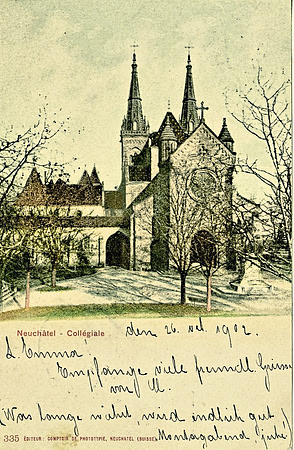 Neuchâtel - Collégiale
den 26. oct. 1902.
L. Emma!
Empfange viele freundl. Grüsse
von M.
(Was lange währt, wird endlich gut!
335 ÉDITEUR: COMPTOIR DE PHOTOTYPIE, NEUCHATEL (SUISSE) Montagabend,